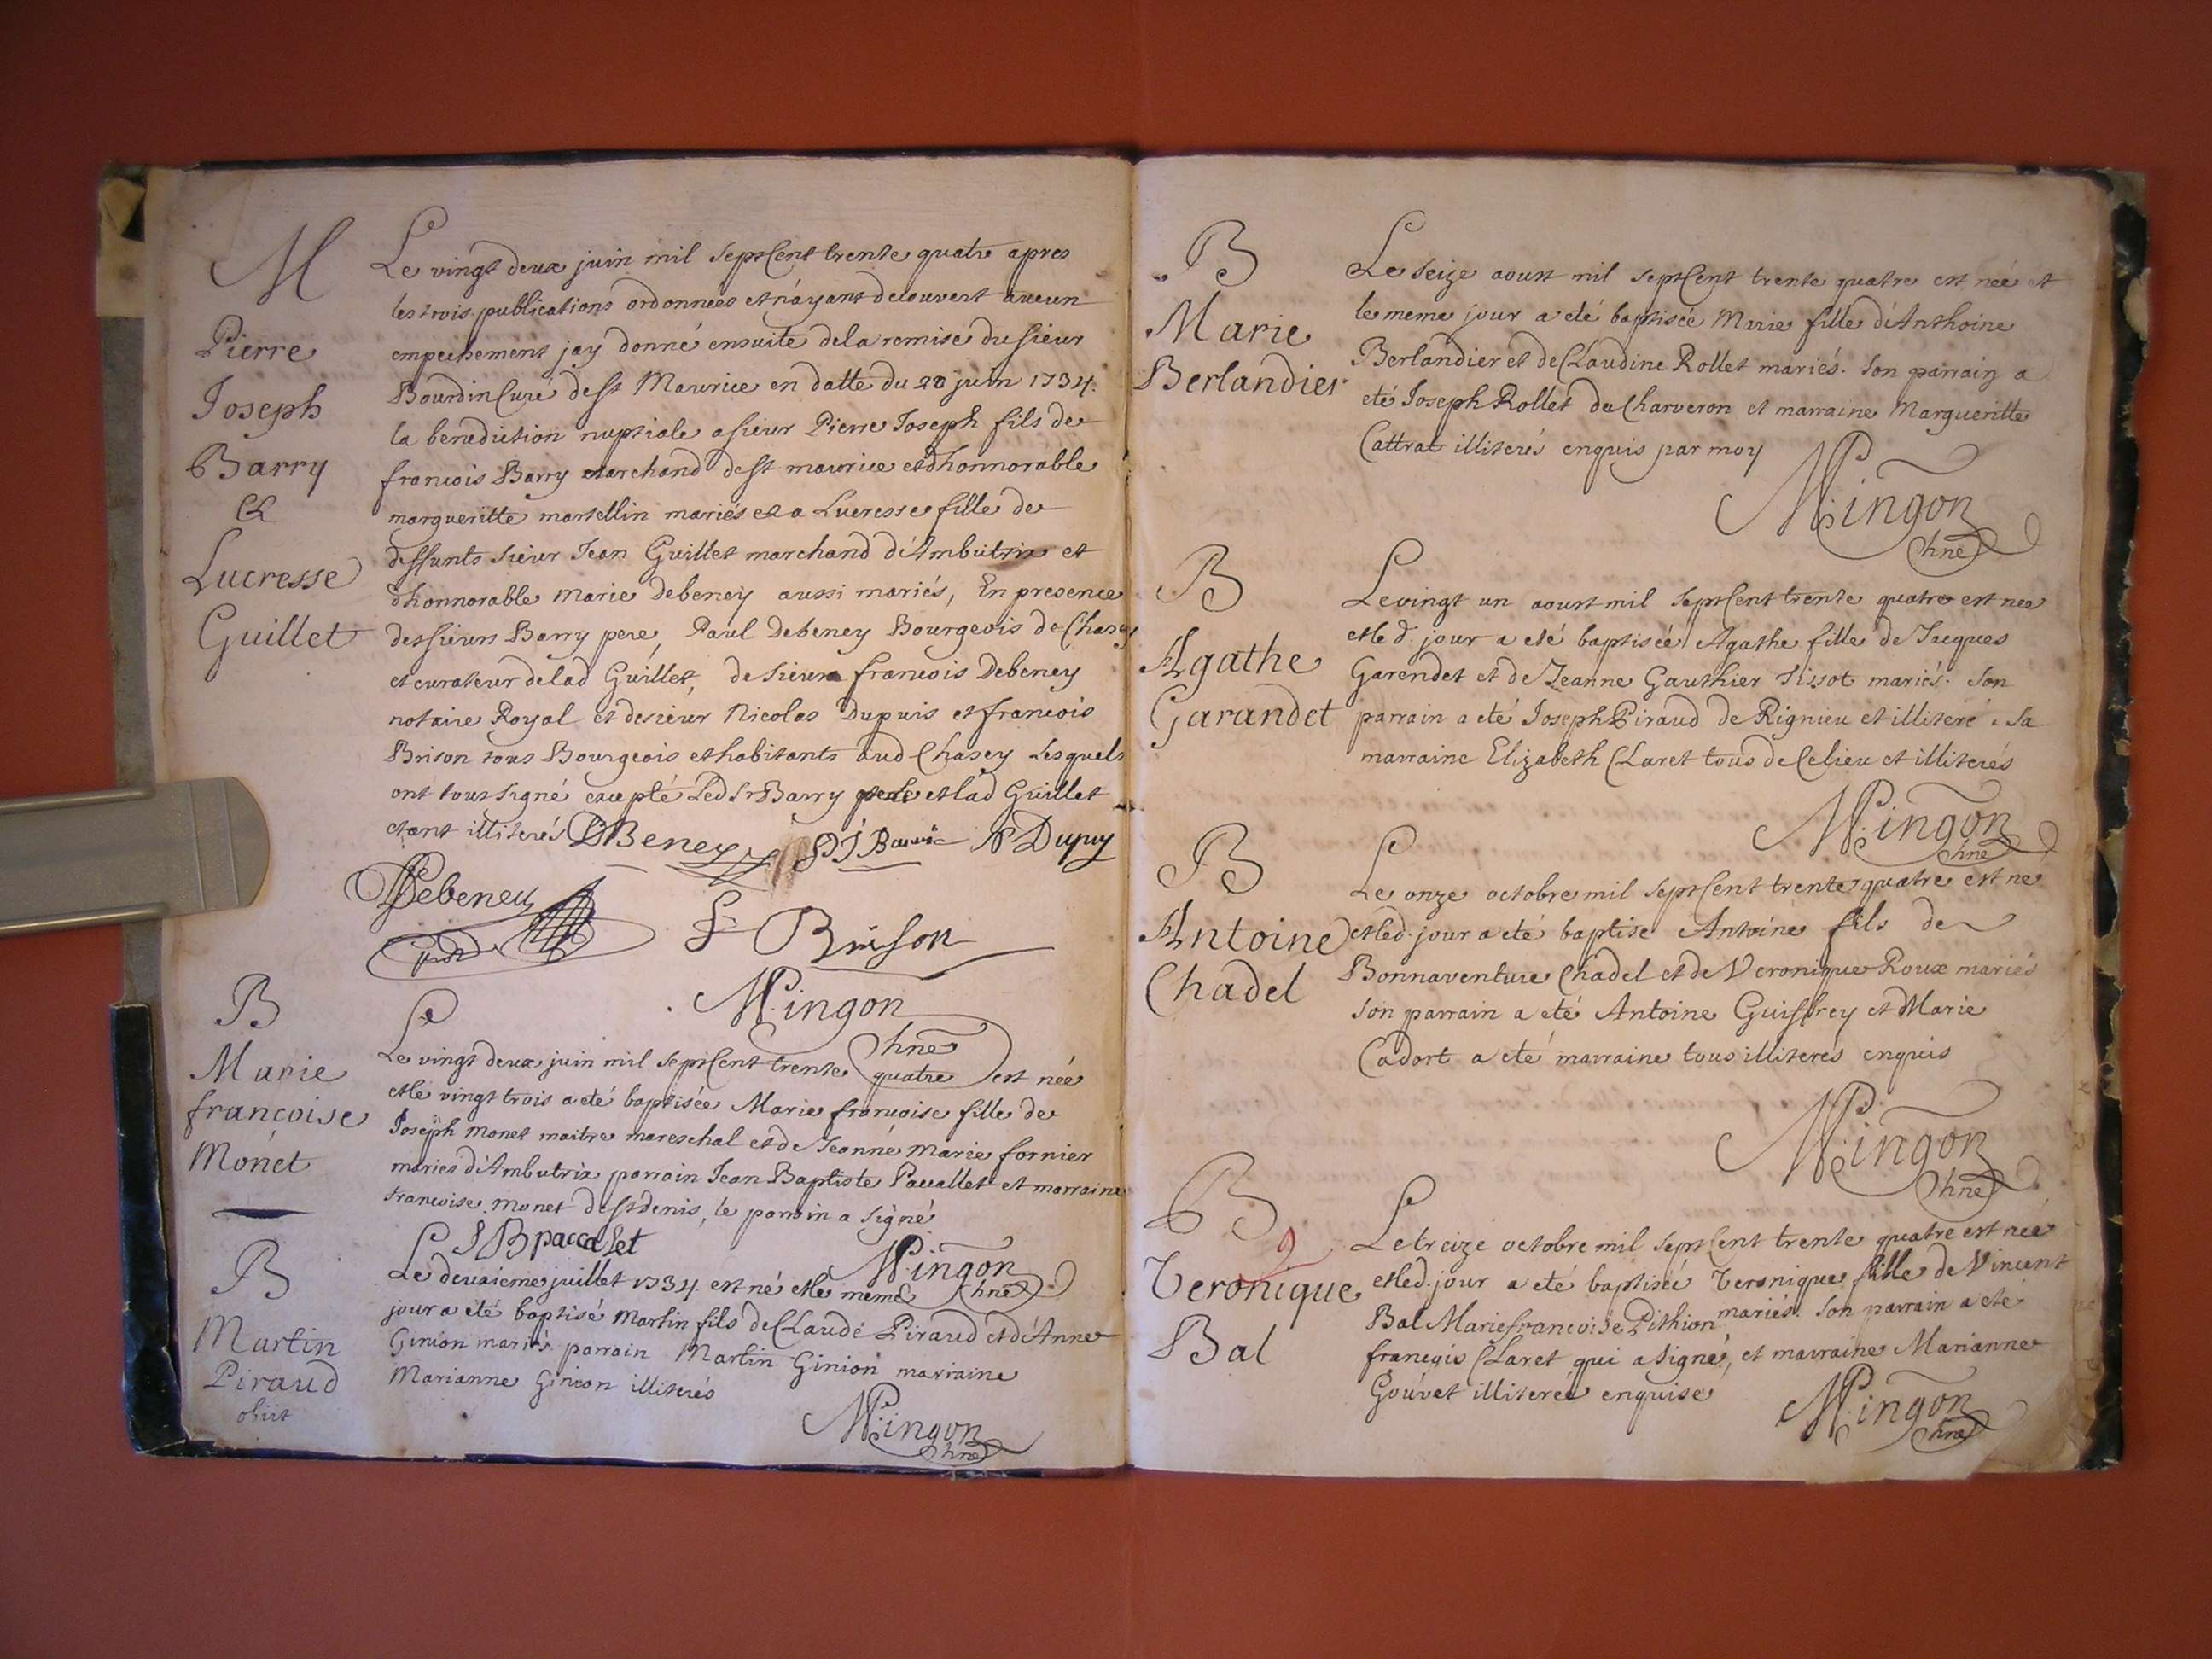 M
Pierre
Joseph
Barry
Et
Lucresse
Guillet
Le vingt deux juin mil sept Cent trente quatre apres
les trois publications ordonnées et n'ayant decouvert aucun
empechement jay donné ensuite de la remise du sieur
Bourdin Curé de st Maurice en datte du 20 juin 1734.
la benediction nuptiale a sieur Pierre Joseph fils de
francois Barry marchand de st maurice et dhonnorable
margueritte martellin mariés et a Lucresse fille de
deffunts sieur Jean Guillet marchand d'Ambutrix et
dhonnorable Marie debeney aussi mariés, En presence
des sieurs Barry pere, Paul Debeney Bourgeois de Chasey
et curateur de lad Guillet, de sieur francois Debeney
notaire Royal et de sieur Nicolas Dupuis et francois
Brison tous Bourgeois et habitants aud Chasey Lesquels
ont tous signé excepté Led Sr Barry pere et lad Guillet
etant illiterés DBeney PJ Barri N Dupuy
Debeney
F Brison
Mingon
Chne
B
Marie
françoise
Monet
Le vingt deux juin mil sept Cent trente quatre est née
et le vingt trois a eté baptisée Marie francoise fille de
Joseph Monet maitre mareschal et de Jeanne Marie fornier
mariés d'Ambutrix parrain Jean Baptiste Pacallet et marraine
francoise Monet de st denis, le parrain a signé
J B paccalet
Mingon
Chne
B
Martin
Piraud
obiit
Le deuxieme juillet 1734 est né et le meme
jour a eté baptisé Martin fils de Claude Piraud et d'Anne
Ginion mariés parrain Martin Ginion marraine
Marianne Ginion illiterés
Mingon
Chne
B
Marie
Berlandier
Le seize aoust mil sept Cent trente quatre est née et
le meme jour a eté baptisée Marie fille d'Anthoine
Berlandier et de Claudine Rollet mariés. Son parrain a
eté Joseph Rollet du Charveron et marraine Margueritte
Cattrat illiterés enquis par moy
Mingon
Chne
B
Agathe
Garandet
Le vingt un aoust mil sept Cent trente quatre est née
et led. jour a eté baptisée Agathe fille de Jacques
Garendet et de Jeanne Gauthier Tissot mariés. Son
parrain a eté Joseph Piraud de Rignieu et illiteré. Sa
marraine Elizabeth Claret tous de Celieu et illiterés
Mingon
Chne
B
Antoine
Chadel
Le onze octobre mil sept Cent trente quatre est né
et led. jour a eté baptise Antoine fils de
Bonnaventure Chadel et de Veronique Roux mariés
Son parrain a eté Antoine Guiffrey et Marie
Cadort a eté marraine tous illiterés enquis
Mingon
Chne
B
9
Veronique
Bal
Le treize octobre mil sept Cent trente quatre est née
et led. jour a eté baptisée Veronique fille de Vincent
Bal Marie francoise Pithion mariés. Son parrain a eté
francois Claret qui a signé, et marraine Marianne
Gouvet illiterée enquise
Mingon
Chne